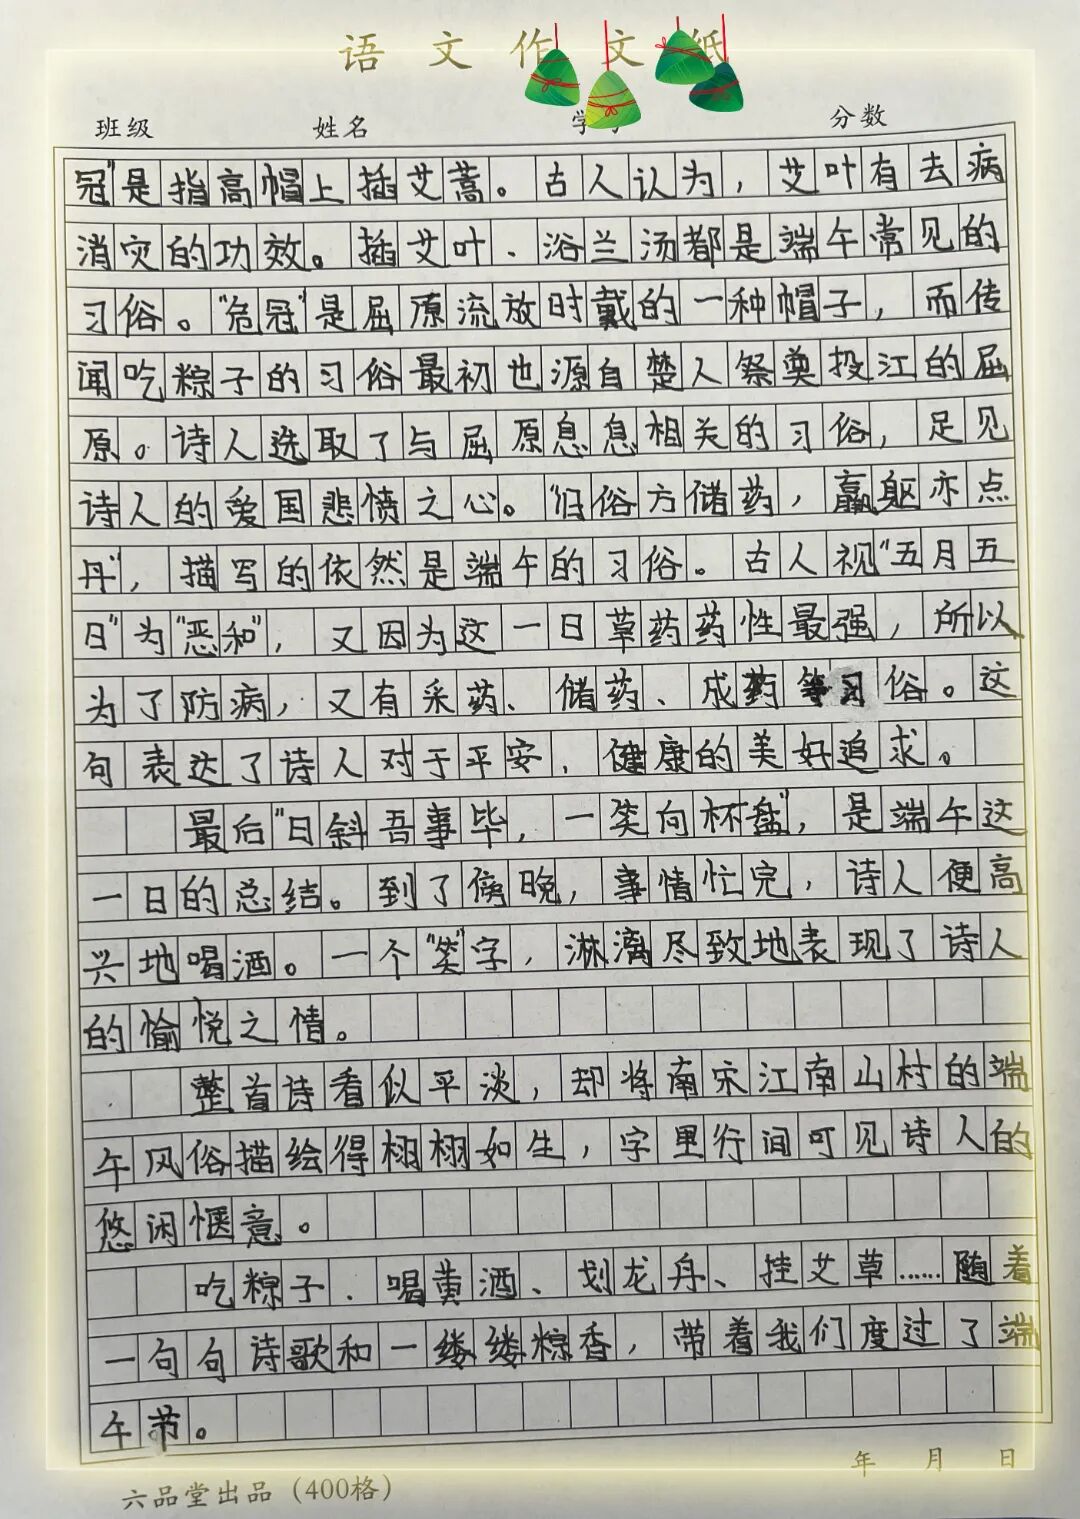 语文作文纸
班级 姓名 学号 分数
冠"是指高帽上插艾蒿。古人认为，艾叶有去病
消灾的功效。插艾叶、浴兰汤都是端午常见的
习俗。"危冠"是屈原流放时戴的一种帽子，而传
闻吃粽子的习俗最初也源自楚人祭奠投江的屈
原。诗人选取了与屈原息息相关的习俗，足见
诗人的爱国悲愤之心。"旧俗方储药，羸躯亦点
丹"，描写的依然是端午的习俗。古人视"五月五
日"为"恶和"，又因为这一日草药药性最强，所以
为了防病，又有采药、储药、成药等习俗。这
句表达了诗人对于平安、健康的美好追求。
最后"日斜吾事毕，一笑向杯盘"，是端午这
一日的总结。到了傍晚，事情忙完，诗人便高
兴地喝酒。一个"笑"字，淋漓尽致地表现了诗人
的愉悦之情。
整首诗看似平淡，却将南宋江南山村的端
午风俗描绘得栩栩如生，字里行间可见诗人的
悠闲惬意。
吃粽子、喝黄酒、划龙舟、挂艾草……随着
一句句诗歌和一缕缕粽香，带着我们度过了端
午节。
年 月 日
六品堂出品（400格）